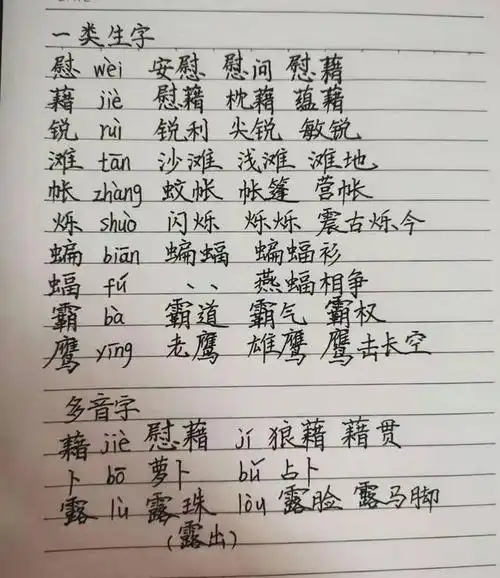 一类生字
慰 wèi 安慰 慰问 慰藉
藉 jiè 慰藉 枕藉 蕴藉
锐 ruì 锐利 尖锐 敏锐
滩 tān 沙滩 浅滩 滩地
帐 zhàng 蚊帐 帐篷 营帐
烁 shuò 闪烁 烁烁 震古烁今
蝙 biān 蝙蝠 蝙蝠衫
蝠 fú 、、 燕蝠相争
霸 bà 霸道 霸气 霸权
鹰 yīng 老鹰 雄鹰 鹰击长空
多音字
藉 jiè 慰藉 jí 狼藉 藉贯
卜 bō 萝卜 bǔ 占卜
露 lù 露珠 lòu 露脸 露马脚
(露出)